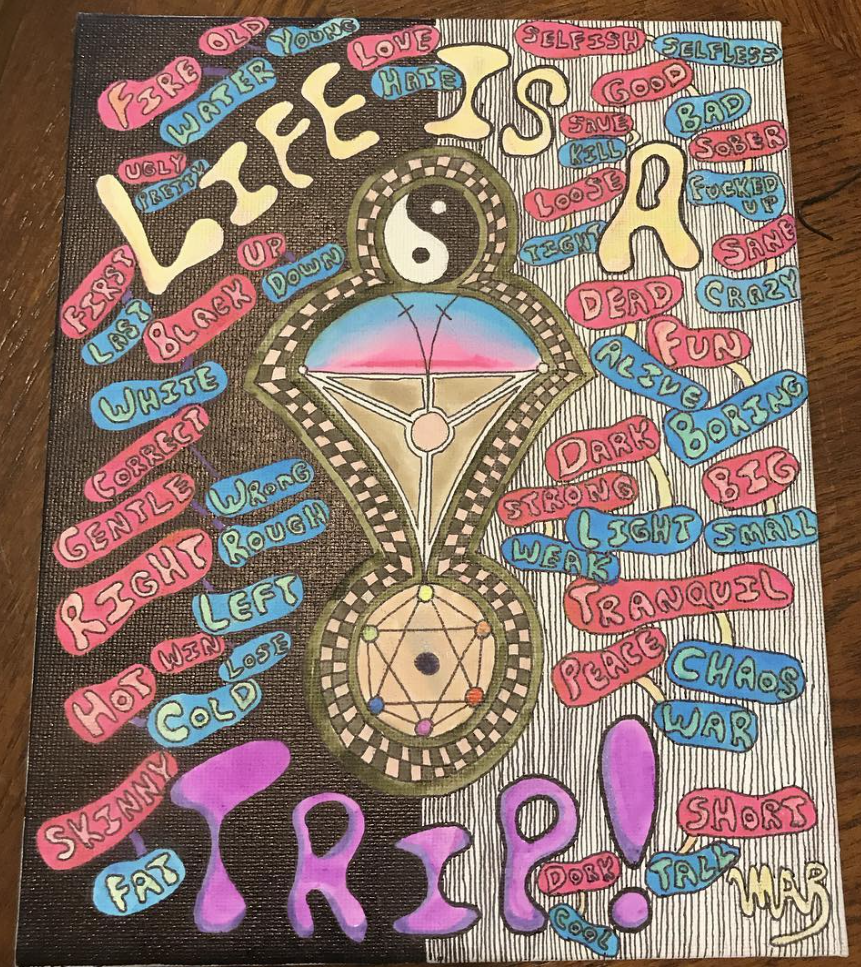 LIFE IS A
TRIP!
OLD
YOUNG
FIRE
WATER
LOVE
HATE
UGLY
PRETTY
FIRST
LAST
UP
DOWN
BLACK
WHITE
CORRECT
WRONG
GENTLE
ROUGH
RIGHT
LEFT
WIN
LOSE
HOT
COLD
SKINNY
FAT
SELFISH
SELFLESS
GOOD
BAD
SAVE
KILL
SOBER
FUCKED
UP
LOOSE
TIGHT
SANE
CRAZY
DEAD
ALIVE
FUN
BORING
DARK
LIGHT
BIG
SMALL
STRONG
WEAK
TRANQUIL
CHAOS
PEACE
WAR
SHORT
TALL
DORK
COOL
MAR